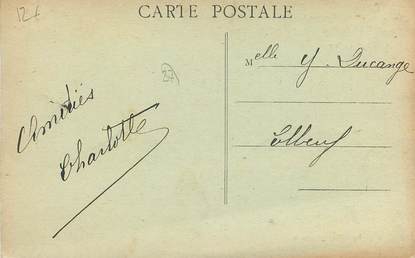 12€
CARTE POSTALE
27
Melle Y. Ducange
Elbeuf
Amitiés
Charlotte